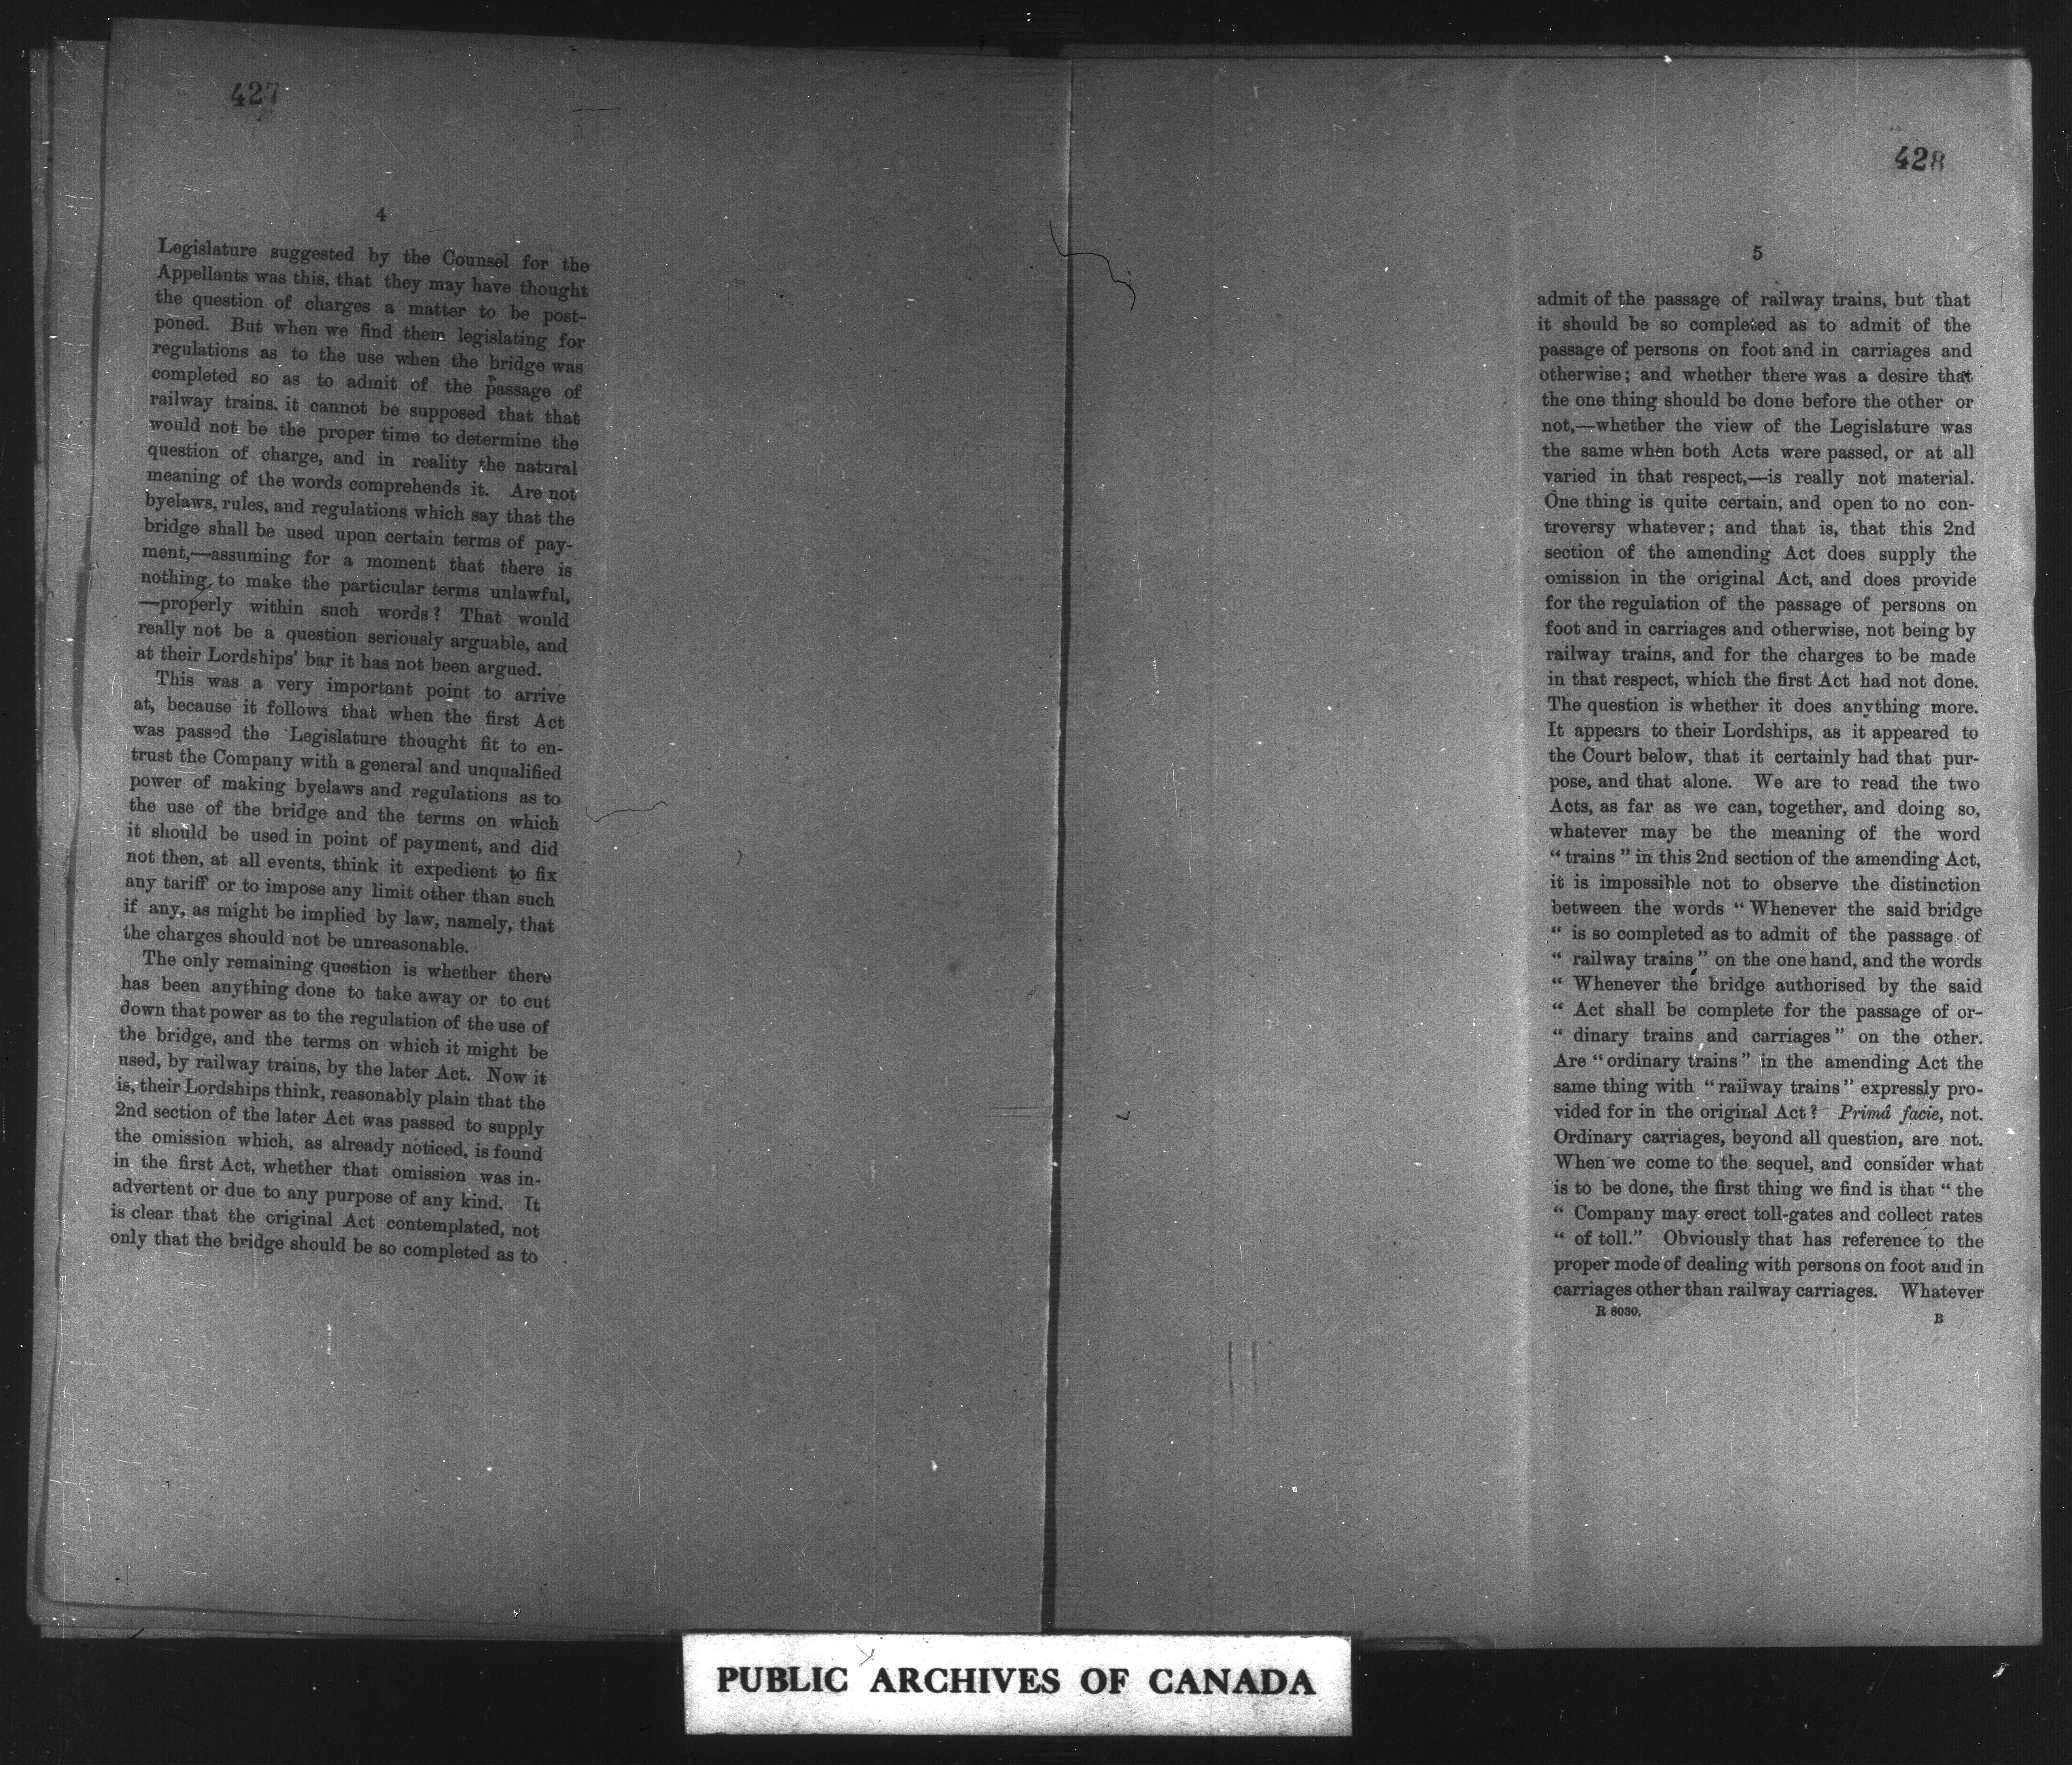 427
4
Legislature suggested by the Counsel for the
Appellants was this, that they may have thought
the question of charges a matter to be post-
poned. But when we find them legislating for
regulations as to the use when the bridge was
completed so as to admit of the passage of
railway trains, it cannot be supposed that that
would not be the proper time to determine the
question of charge, and in reality the natural
meaning of the words comprehends it. Are not
byelaws, rules, and regulations which say that the
bridge shall be used upon certain terms of pay-
ment,—assuming for a moment that there is
nothing to make the particular terms unlawful,
—properly within such words? That would
really not be a question seriously arguable, and
at their Lordships' bar it has not been argued.
This was a very important point to arrive
at, because it follows that when the first Act
was passed the Legislature thought fit to en-
trust the Company with a general and unqualified
power of making byelaws and regulations as to
the use of the bridge and the terms on which
it should be used in point of payment, and did
not then, at all events, think it expedient to fix
any tariff or to impose any limit other than such
if any, as might be implied by law, namely, that
the charges should not be unreasonable.
The only remaining question is whether there
has been anything done to take away or to cut
down that power as to the regulation of the use of
the bridge, and the terms on which it might be
used, by railway trains, by the later Act. Now it
is, their Lordships think, reasonably plain that the
2nd section of the later Act was passed to supply
the omission which, as already noticed, is found
in the first Act, whether that omission was in-
advertent or due to any purpose of any kind. It
is clear that the original Act contemplated, not
only that the bridge should be so completed as to
428
5
admit of the passage of railway trains, but that
it should be so completed as to admit of the
passage of persons on foot and in carriages and
otherwise; and whether there was a desire that
the one thing should be done before the other or
not,—whether the view of the Legislature was
the same when both Acts were passed, or at all
varied in that respect,—is really not material.
One thing is quite certain, and open to no con-
troversy whatever; and that is, that this 2nd
section of the amending Act does supply the
omission in the original Act, and does provide
for the regulation of the passage of persons on
foot and in carriages and otherwise, not being by
railway trains, and for the charges to be made
in that respect, which the first Act had not done.
The question is whether it does anything more.
It appears to their Lordships, as it appeared to
the Court below, that it certainly had that pur-
pose, and that alone. We are to read the two
Acts, as far as we can, together, and doing so,
whatever may be the meaning of the word
"trains" in this 2nd section of the amending Act,
it is impossible not to observe the distinction
between the words "Whenever the said bridge
" is so completed as to admit of the passage of
" railway trains" on the one hand, and the words
" Whenever the bridge authorised by the said
" Act shall be complete for the passage of or-
" dinary trains and carriages" on the other.
Are "ordinary trains" in the amending Act the
same thing with "railway trains" expressly pro-
vided for in the original Act? Primâ facie, not.
Ordinary carriages, beyond all question, are not.
When we come to the sequel, and consider what
is to be done, the first thing we find is that "the
" Company may erect toll-gates and collect rates
" of toll." Obviously that has reference to the
proper mode of dealing with persons on foot and in
carriages other than railway carriages. Whatever
R 8030.
B
PUBLIC ARCHIVES OF CANADA